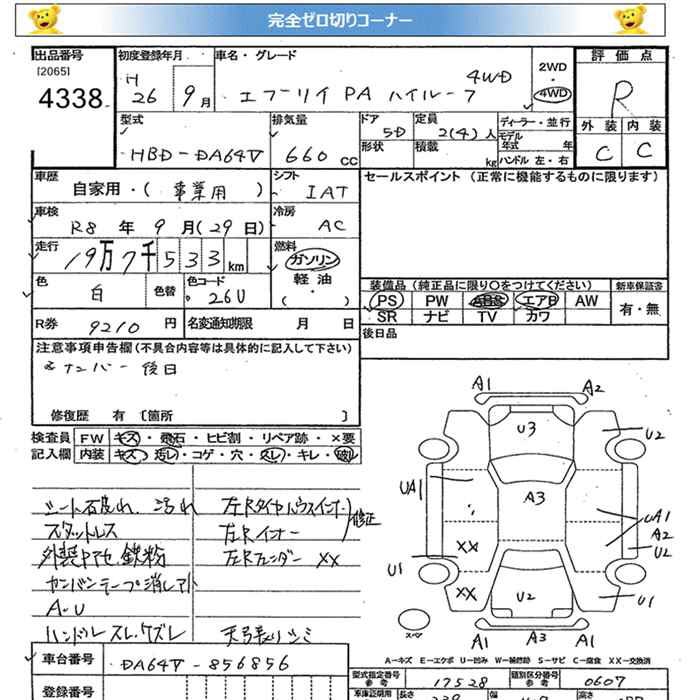 完全ゼロ切りコーナー
出品番号 初度登録年月 車名・グレード 評価点
[2065] H 26 9月 エブリイ PA ハイルーフ 4WD 2WD・4WD R
4338
外装 内装
C C
型式 排気量 ドア 定員 ディーラー・並行
HBD-DA64V 660 cc 5D 2(4)人 モデル年式 年
形状 積載 kg ハンドル 左・右
車歴 シフト セールスポイント(正常に機能するものに限ります)
自家用・(事業用) IAT
車検 冷房
R8 年 9 月(29日) AC
走行 燃料
19万7千533km ガソリン
軽油
・( )
色 色替 色コード 装備品(純正品に限り○をつけてください) 新車保証書
白 26U PS PW ABS エアB AW 有・無
SR ナビ TV カワ
R券 9210 円 名変通知期限 月 日 後日品
注意事項申告欄(不具合内容等は具体的に記入して下さい)
ナンバー 後日
修復歴 有 [箇所 ]
検査員 FW キズ・飛石・ヒビ割・リペア跡・×要
記入欄 内装 キズ・汚レ・コゲ・穴・スレ・キレ・破レ
シート破れ、汚れ 左Rタイヤハウスインナー
スタットレス 左Rインナー 修正
外装ヤケ、鉄粉 左Rフェンダー XX
カンバンテープ消し不
A・U
ハンドルスレ、ケズレ 天張りシミ
A1 A2
U3 U2
UA1 A3
UA1
A2
U2
XX
U1
XX U2 U1
スペア
A1 A3 A1
A-キズ E-エクボ U-凹み W-補修跡 S-サビ C-腐食 XX-交換済
車台番号 DA64V-856856
型式指定番号 参考 17528 類別区分番号 参考 0607
登録番号
車庫証明用 参考 長さ 339 幅